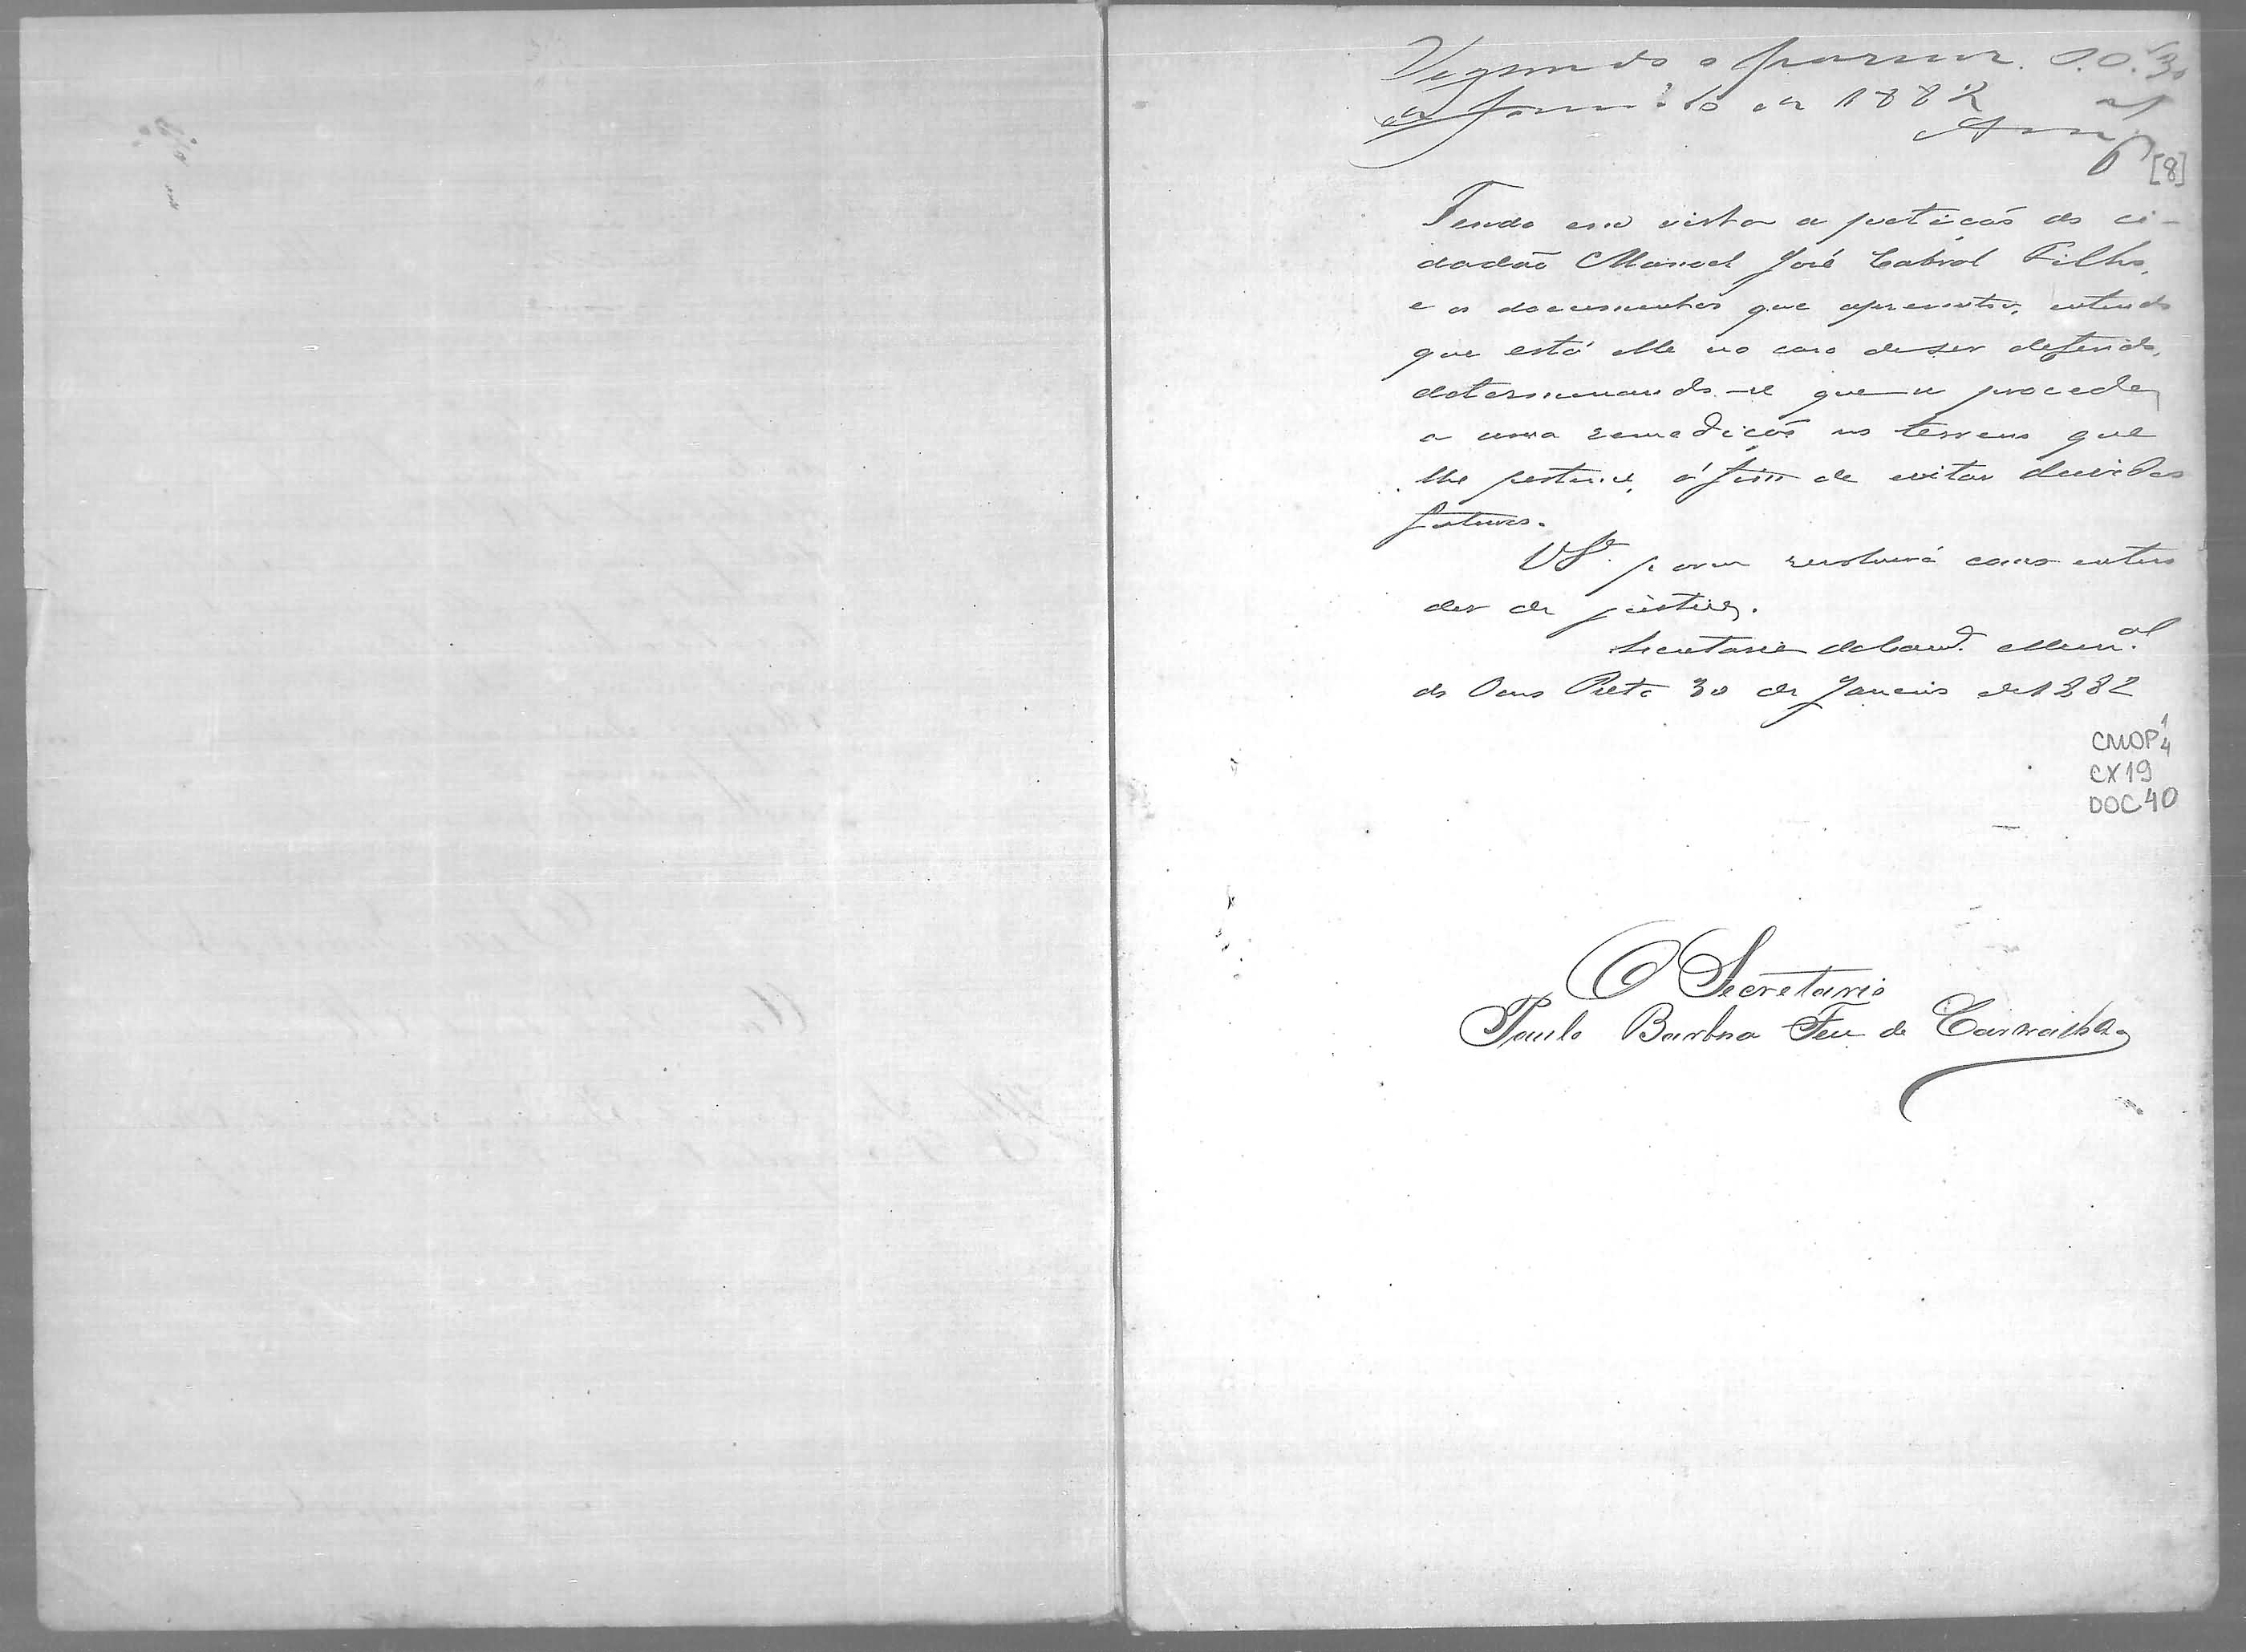 o parecer. O. P. 30
de Janeiro de 1882
[8]
Tendo em vista a petição do ci-
dadão Manoel José Cabral Filho,
e os documentos que apresenta, entendo
que está elle no caso de ser deferido,
determinando-se que se proceda
a uma remedição no terreno que
lhe pertence, á fim de evitar duvidas
futuras.
VSª porem resolverá como enten
der de justiça.
Secretaria da Camª Munal
do Ouro Preto 30 de Janeiro de 1882
CMOP 1/4
CX 19
DOC 40
O Secretario
Paulo Barbosa Feu de Carvalho